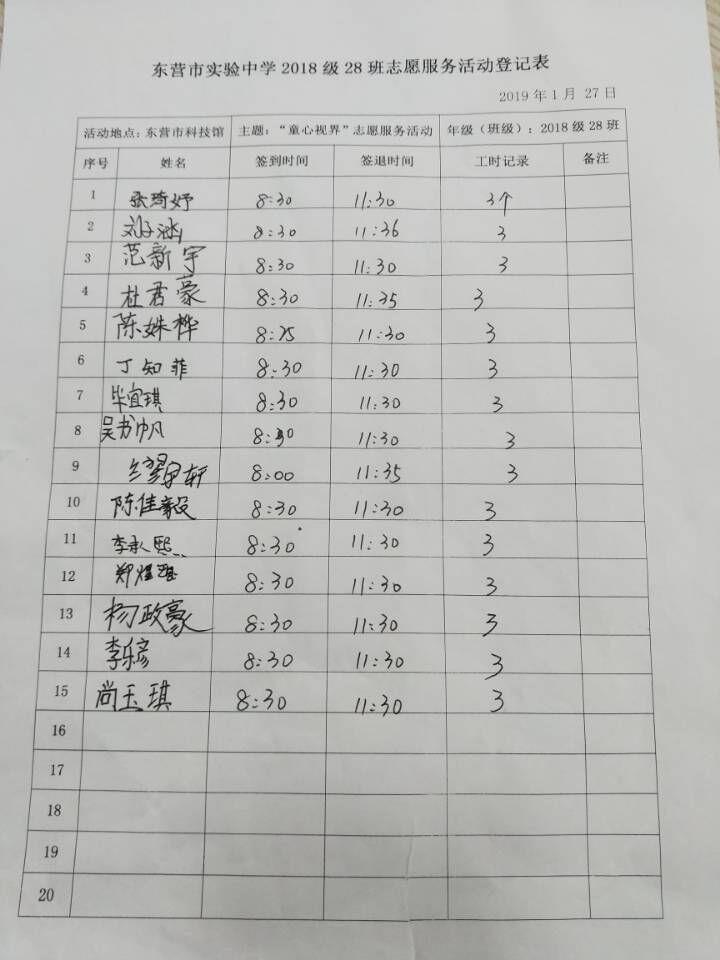 东营市实验中学 2018 级 28 班志愿服务活动登记表
2019 年 1 月 27 日
活动地点：东营市科技馆 主题：“童心视界”志愿服务活动 年级（班级）：2018 级 28 班
序号 姓名 签到时间 签退时间 工时记录 备注
1 张琦妤 8:30 11:30 3个
2 刘子涵 8:30 11:36 3
3 范新宇 8:30 11:30 3
4 杜君豪 8:30 11:35 3
5 陈姝桦 8:25 11:30 3
6 丁知菲 8:30 11:30 3
7 毕宜琪 8:30 11:30 3
8 吴书帆 8:30 11:30 3
9 8:00 11:35 3
10 陈佳毅 8:30 11:30 3
11 李承熙 8:30 11:30 3
12 8:30 11:30 3
13 杨政豪 8:30 11:30 3
14 李乐彦 8:30 11:30 3
15 尚玉琪 8:30 11:30 3
16
17
18
19
20